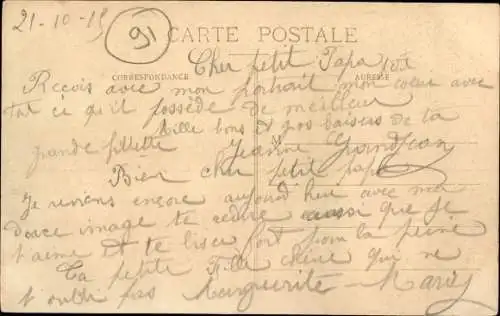 21-10-15
91
CARTE POSTALE
Cher petit Papa
CORRESPONDANCE
ADRESSE
Reçois avec mon portrait mon cœur avec
tot ce qu'il possède de meilleur
Mille bons et gros baisers de ta
grande fillette Jeanne
Bien cher petit papa
Je reviens encore aujourd heu avec ma
douce image te redire aussi que je
t'aime et te bise fort pour la peine
Ta petite Fille chérie qui ne
t'oubli pas Marguerite-Marie